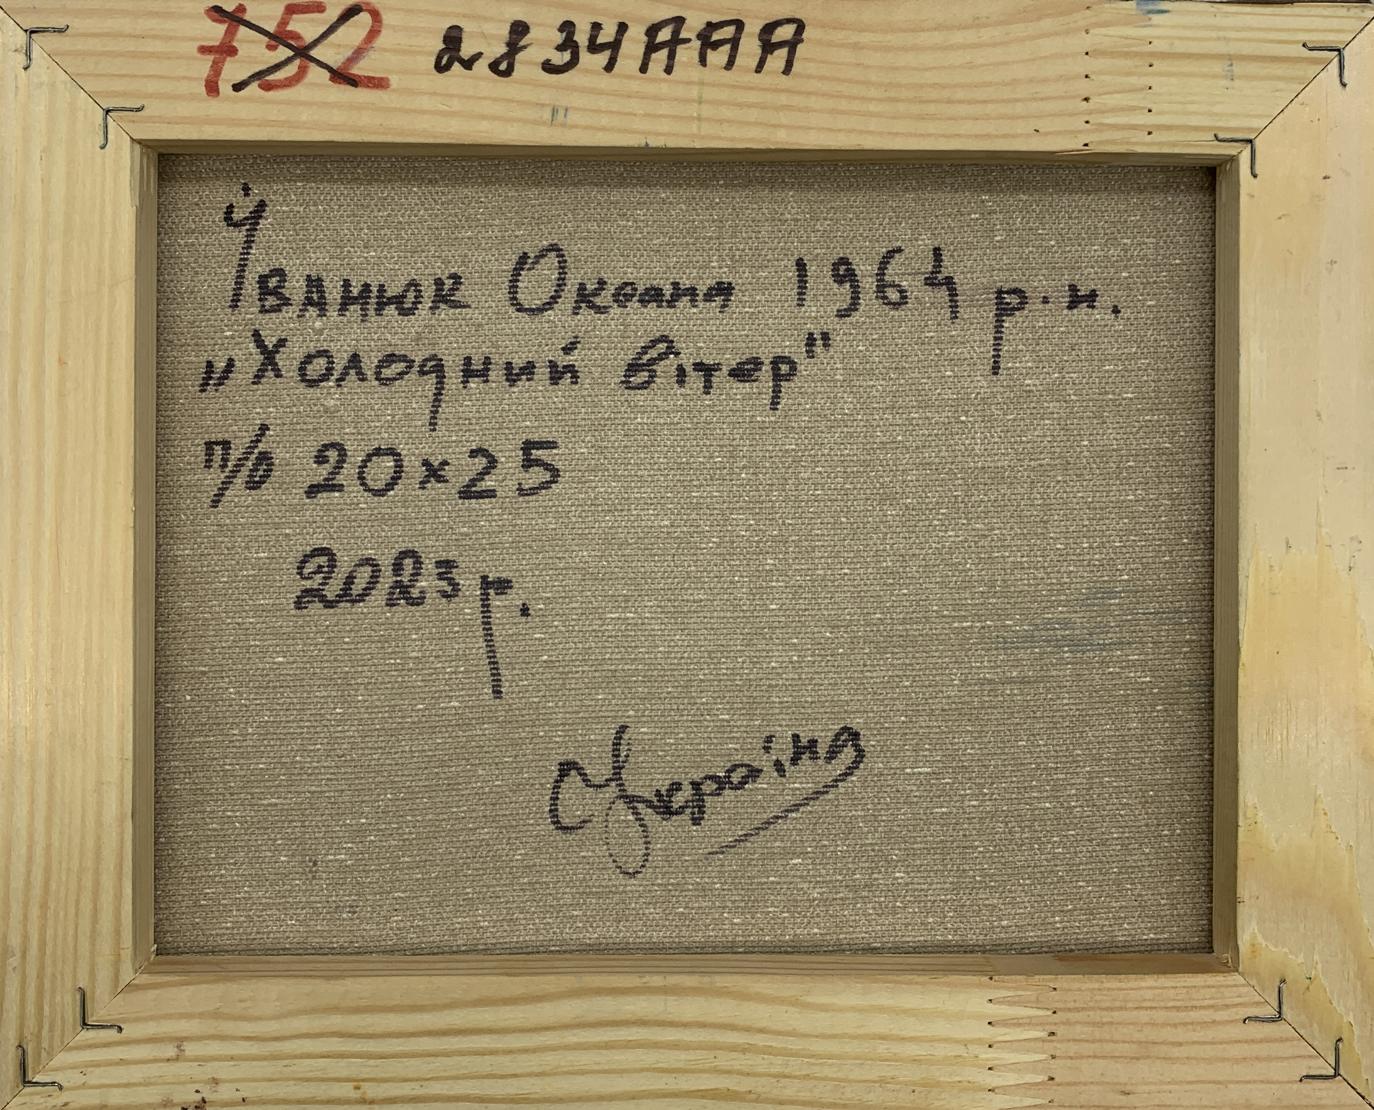 752 2834ААА
Іванюк Оксана 1964 р.н.
„Холодний вітер"
п/о 20×25
2023 р.
Україна